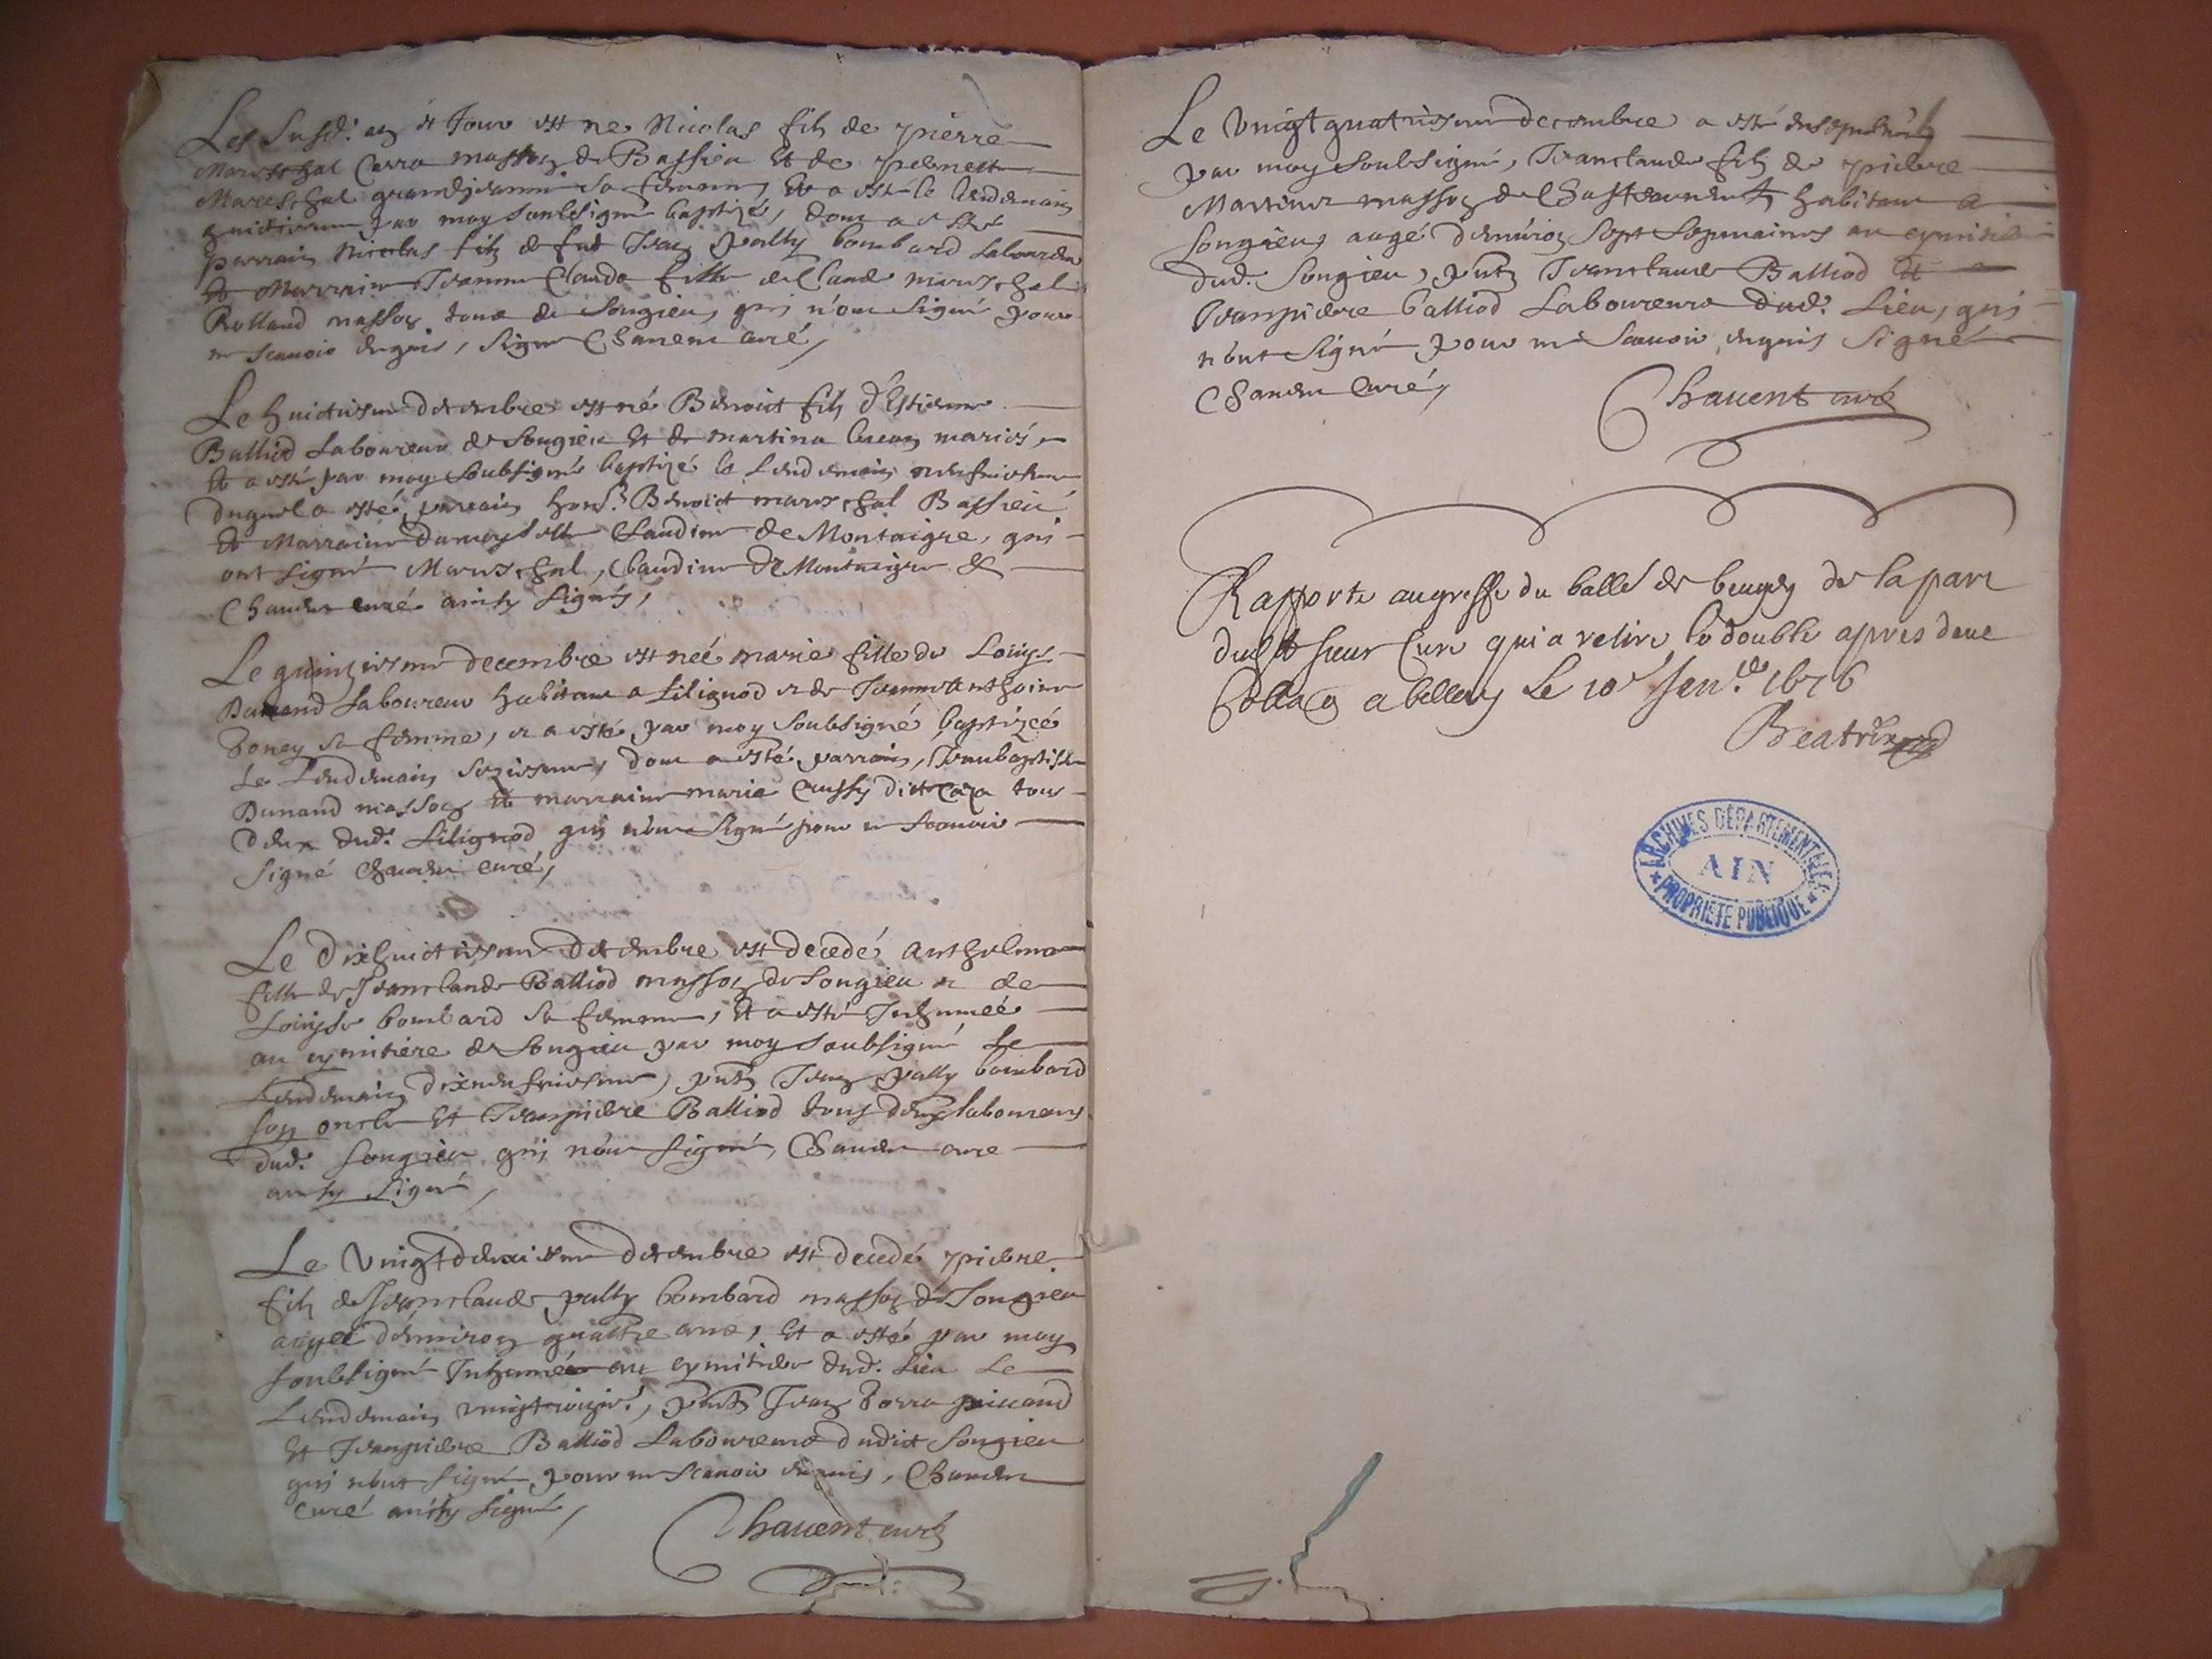 Les Susd.t an et Jour est né Nicolas filz de pierre
Mareschal Carra masson de Bassieu et de pernette
Mareschal grandjeanne sa femme, et a esté le lendemain
huictiesme par moy soubsigné baptizé, dont a esté
parrain Nicolas filz de feu Jean pally bombard laboureur
et Marraine Jeanne Claude fille de Claude mareschal
Rolland masson tous de Songieu, qui n'ont signé pour
ne scauoir enquis, Signé Chauent curé,
Le huictiesme decembre est né Benoict filz d'Estienne
Balliod Laboureur de Songieu et de martina mariés,
et a esté par moy soubsigné baptizé le lendemain neufuiesme
duquel a esté parrain hon.e Benoict mareschal Bassieu
et Marraine damoyselle Claudine de Montaigre, qui
ont signé Mareschal, Claudine De Montaigre &
Chauent curé ainsy signés,
Le quinziesme decembre est neé marie fille de Loüys
Dunand Laboureur habitant a Lilignod et de Jeanne Anthoine
Toney sa femme, et a esté par moy soubsigné baptizeé
Le Lendemain seziesme, dont a esté parrain, Jeanbaptiste
Dunand masson et marraine marie Crussy dict Caza tous
deux dud.t Lilignod qui n'ont signé pour ne scauoir
Signé Chauent curé,
Le Dixhuictiesme Decembre est decedé anthelma
fille de Jeanclaude Balliod masson de Songieu et de
Loüyse bombard sa femme, et a esté Inhumeé
au cymitiére de Songieu par moy soubsigné Le
Lendemain dixneufuiesme, p.nts Jean pally bombard
son oncle et Jeanpierre Balliod tous deux laboureurs
dud.t Songieu qui n'ont signé, Chauent curé
ainsy signé,
Le Vingtdeuxiesme decembre est decedé pierre
filz de Jeanclaude pally bombard masson de Songieu
aagé d'enuiron quattre ans, et a esté par moy
soubsigné Inhumé au cymitiére dud.t Lieu Le
Lendemain vingtroizie.e, p.nts Jean Torra
et Jeanpierre Balliod Laboureurs dudict Songieu
qui n'ont signé pour ne scauoir enquis, Chauent
curé ainsy signé,
Chauent curé
Le Vingtquatriesme decembre a esté ensepuely
par moy soubsigné, Jeanclaude filz de pierre
Martinet masson de habitant a
Songieu, aagé d'enuiron sept sepmaines au cymitiére
dud.t Songieu, p.nts Jeanclaude Balliod et
Jeanpierre balliod Laboureurs dud.t Lieu, qui
n'ont signé pour ne scauoir enquis signé
Chauent curé,
Chauent curé
Rapporté au greffe du balle de beugey de la part
dudit sieur Curé qui a retiré le double apres deue
Colla.on a belley Le 10e Jan.er 1676
Beatrix
ARCHIVES DÉPARTEMENTALES
AIN
PROPRIÉTÉ PUBLIQUE